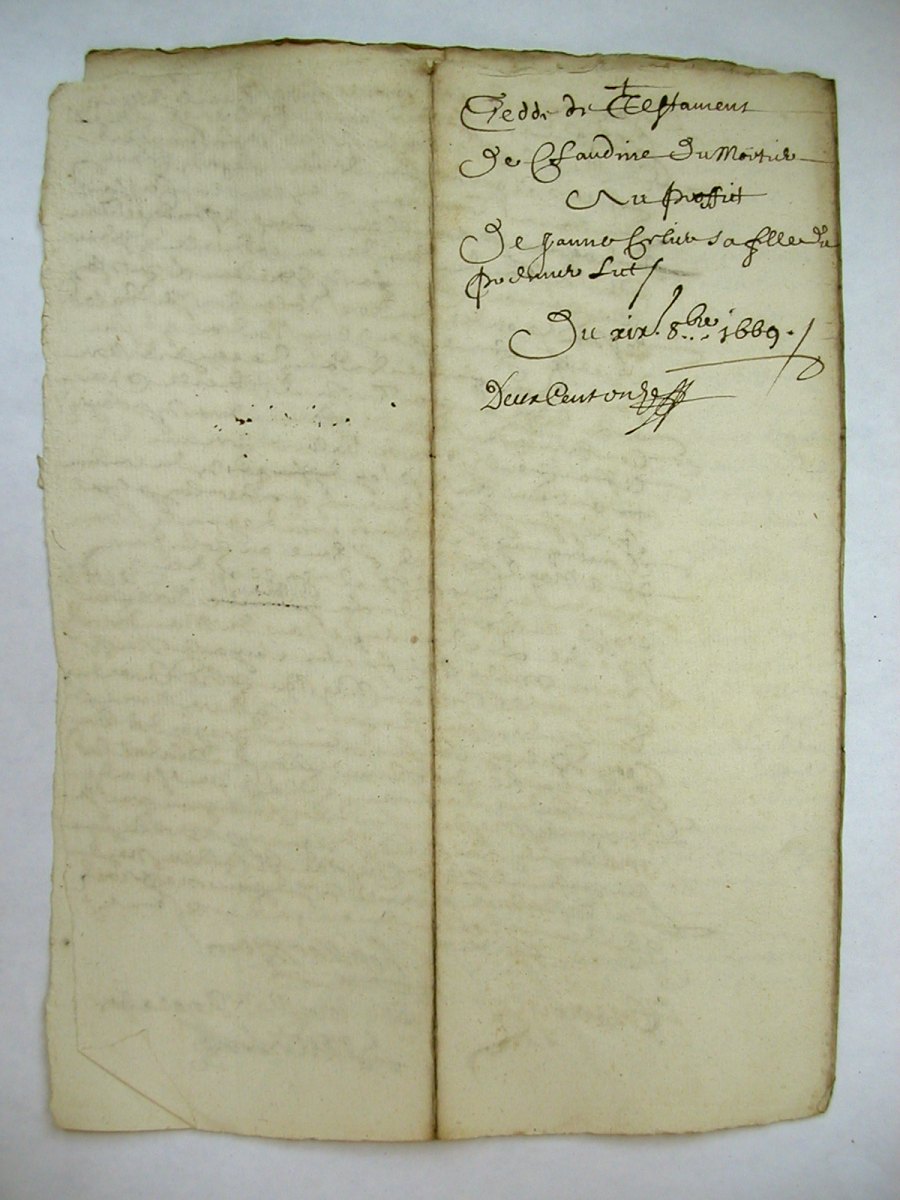 Cedde de Testament
De Claudine Du Mortier
Au proffict
De Janne Sa fille du
premier Lict
Du xix. 8.bre 1669.
Deux Cent onze